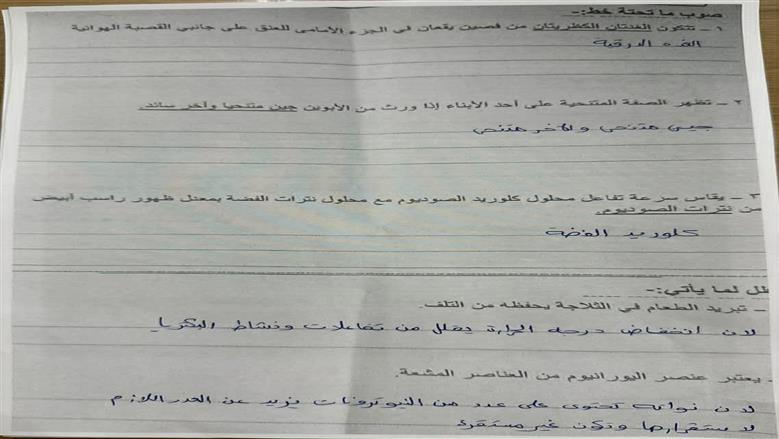 صوب ما تحتة خط:-
١ – تتكون الغدتان الكظريتان من فصين يقعان في الجزء الأمامي للعنق على جانبي القصبة الهوائية
الغدة الدرقية
٢ – تظهر الصفة المتنحية على أحد الأبناء إذا ورث من الأبوين جين متنحيا وأخر سائد.
جين متنحى والآخر متنحى
٣ – يقاس سرعة تفاعل محلول كلوريد الصوديوم مع محلول نترات الفضة بمعدل ظهور راسب أبيض
من نترات الصوديوم.
كلوريد الفضة
لل لما يأتي:-
– تبريد الطعام في الثلاجة يحفظه من التلف.
لان انخفاض درجه الحرارة يقلل من تفاعلات ونشاط البكتريا
– يعتبر عنصر اليورانيوم من العناصر المشعة.
لان نواته تحتوى على عدد من النيوترونات يزيد عن العدد اللازم
لاستقرارها وتكون غير مستقرة